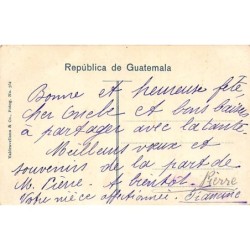 República de Guatemala
Bonne et heureuse fête
cher Oncle et bons baisers
à partager avec la tante
Meilleurs vœux et
souvenirs de la part de
M. Pierre. A bientôt.
Votre nièce affectionnée.